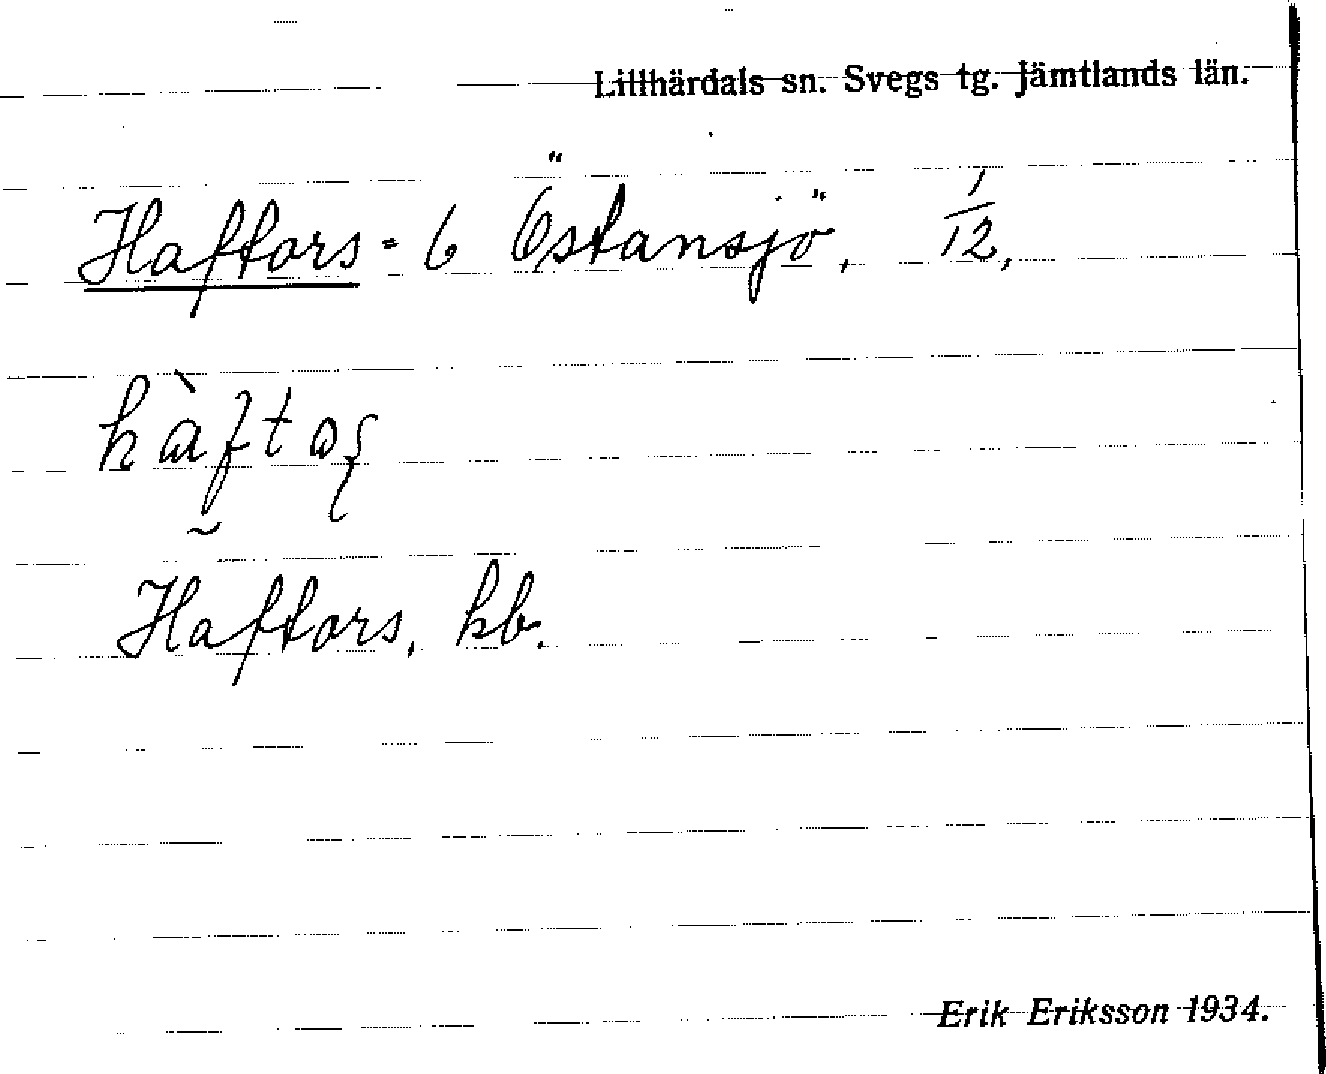 Lillhärdals sn. Svegs tg. Jämtlands län.
Haftors = 6 Östansjö, 1/12,
Haftors, kb.
Erik Eriksson 1934.